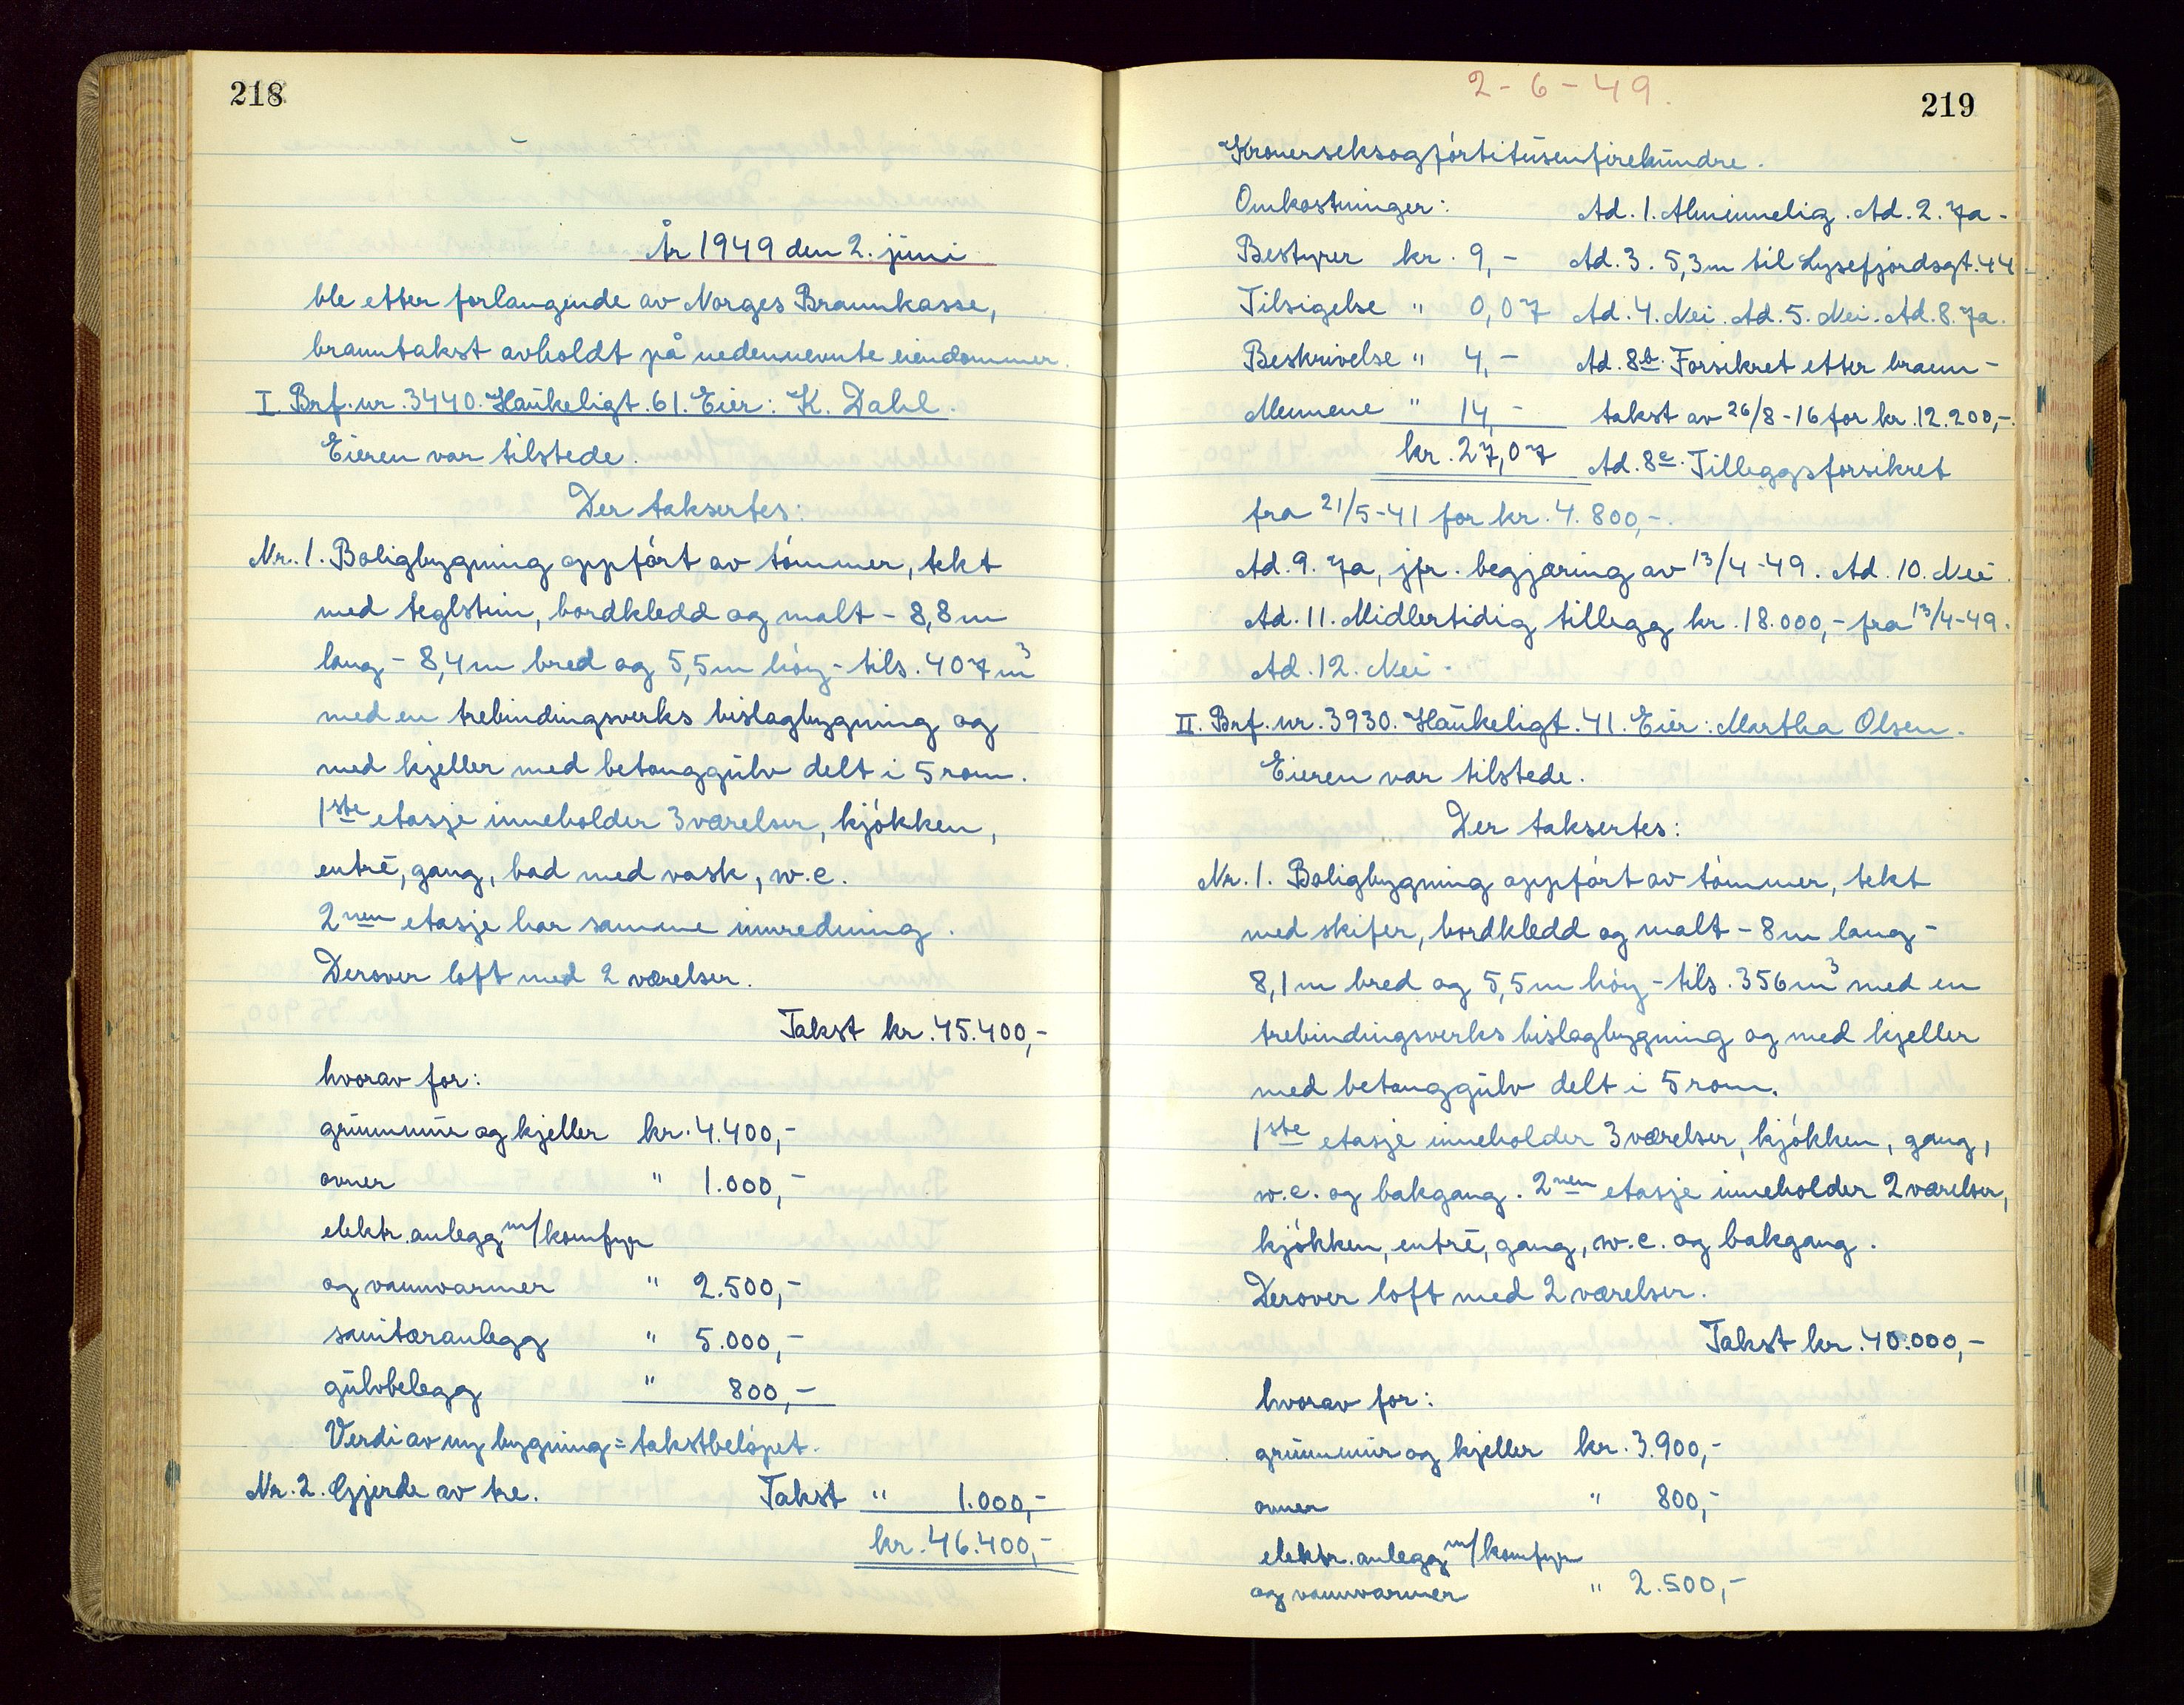 218
År 1949 den 2. juni
ble etter forlangende av Norges Brannkasse,
branntakst avholdt på nedennevnte eiendommer.
I. Brf. nr. 3440. Haukeligt. 61. Eier: K. Dahl.
Eieren var tilstede.
Der taksertes:
Nr. 1. Boligbygning oppført av tømmer, tekt
med teglstein, bordkledd og malt - 8,8 m
lang - 8,4 m bred og 5,5 m høy - tils. 407 m³
med en trebindingsverks bislagbygning og
med kjeller med betonggulv delt i 5 rom.
1ste etasje inneholder 3 værelser, kjøkken,
entré, gang, bad med vask, w.c.
2nen etasje har samme innredning.
Derover loft med 2 værelser.
Takst kr. 45.400,-
hvorav for:
grunnmur og kjeller kr. 4.400,-
ovner " 1.000,-
elektr. anlegg m/komfyr
og vannvarmer " 2.500,-
sanitæranlegg " 5.000,-
gulvbelegg " 800,-
Verdi av ny bygning = takstbeløpet.
Nr. 2. Gjerde av tre. Takst " 1.000,-
kr. 46.400,-
2-6-49.
219
Kronerseksogførtitusenfirehundre.
Omkostninger: Ad. 1. Alminnelig. Ad. 2. Ja -
Bestyrer kr. 9,- Ad. 3. 5,3 m til Lysefjordsgt. 44.
Tilsigelse " 0,07 Ad. 4. Nei. Ad. 5. Nei. Ad. 8. Ja.
Beskrivelse " 4,- Ad. 8b. Forsikret etter brann-
Mennene " 14,- takst av 26/8-16 for kr. 12.200,-.
kr. 27,07 Ad. 8c. Tilleggsforsikret
fra 21/5-41 for kr. 4.800,-.
Ad. 9. Ja, jfr. begjæring av 13/4-49. Ad. 10. Nei.
Ad. 11. Midlertidig tillegg kr. 18.000,- fra 13/4-49.
Ad. 12. Nei.
II. Brf. nr. 3930. Haukeligt. 41. Eier: Martha Olsen.
Eieren var tilstede.
Der taksertes:
Nr. 1. Boligbygning oppført av tømmer, tekt
med skifer, bordkledd og malt - 8 m lang -
8,1 m bred og 5,5 m høy - tils. 356 m³ med en
trebindingsverks bislagbygning og med kjeller
med betonggulv delt i 5 rom.
1ste etasje inneholder 3 værelser, kjøkken, gang,
w.c. og bakgang. 2nen etasje inneholder 2 værelser,
kjøkken, entré, gang, w.c. og bakgang.
Derover loft med 2 værelser.
Takst kr. 40.000,-
hvorav for:
grunnmur og kjeller kr. 3.900,-
ovner " 800,-
elektr. anlegg m/komfyr
og vannvarmer " 2.500,-